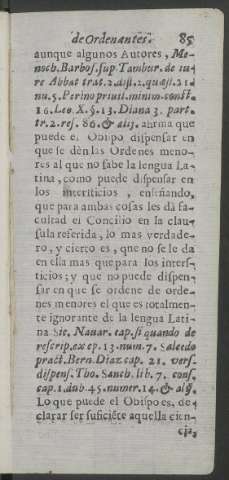 de Ordenantes. 85
aunque algunos Autores, Me-
noch. Barbos. sup. Tambur. de iu-
re Abbat. trat. 2. disl. 2. quæst. 21.
nu. 5. Perino priuil. minim. const.
16. Leo. X. §. 13. Diana 3. part.
tr. 2. res. 86. & alij. afirma que
puede el Obispo dispensar en
que se dèn las Ordenes meno-
res al que no sabe la lengua La-
tina, como puede dispensar en
los intersticios, enseñando,
que para ambas cosas les dà fa-
cultad el Concilio en la clau-
sula referida, lo mas verdade-
ro, y cierto es, que no se le da
en ella mas que para los inters-
ticios; y que no puede dispen-
sar en que se ordene de orde-
nes menores el que es totalmen-
te ignorante de la lengua Lati-
na Sic. Nauar. cap. si quando de
rescrip. ex ep. 13. num. 7. Salcedo
pract. Bern. Diaz cap. 21. vers.
dispens. Tho. Sanch. lib. 7. cons.
cap. 1. dub. 45. numer. 14. & alij.
Lo que puede el Obispo es, de-
clarar ser suficiẽte aquella cien-
cia,